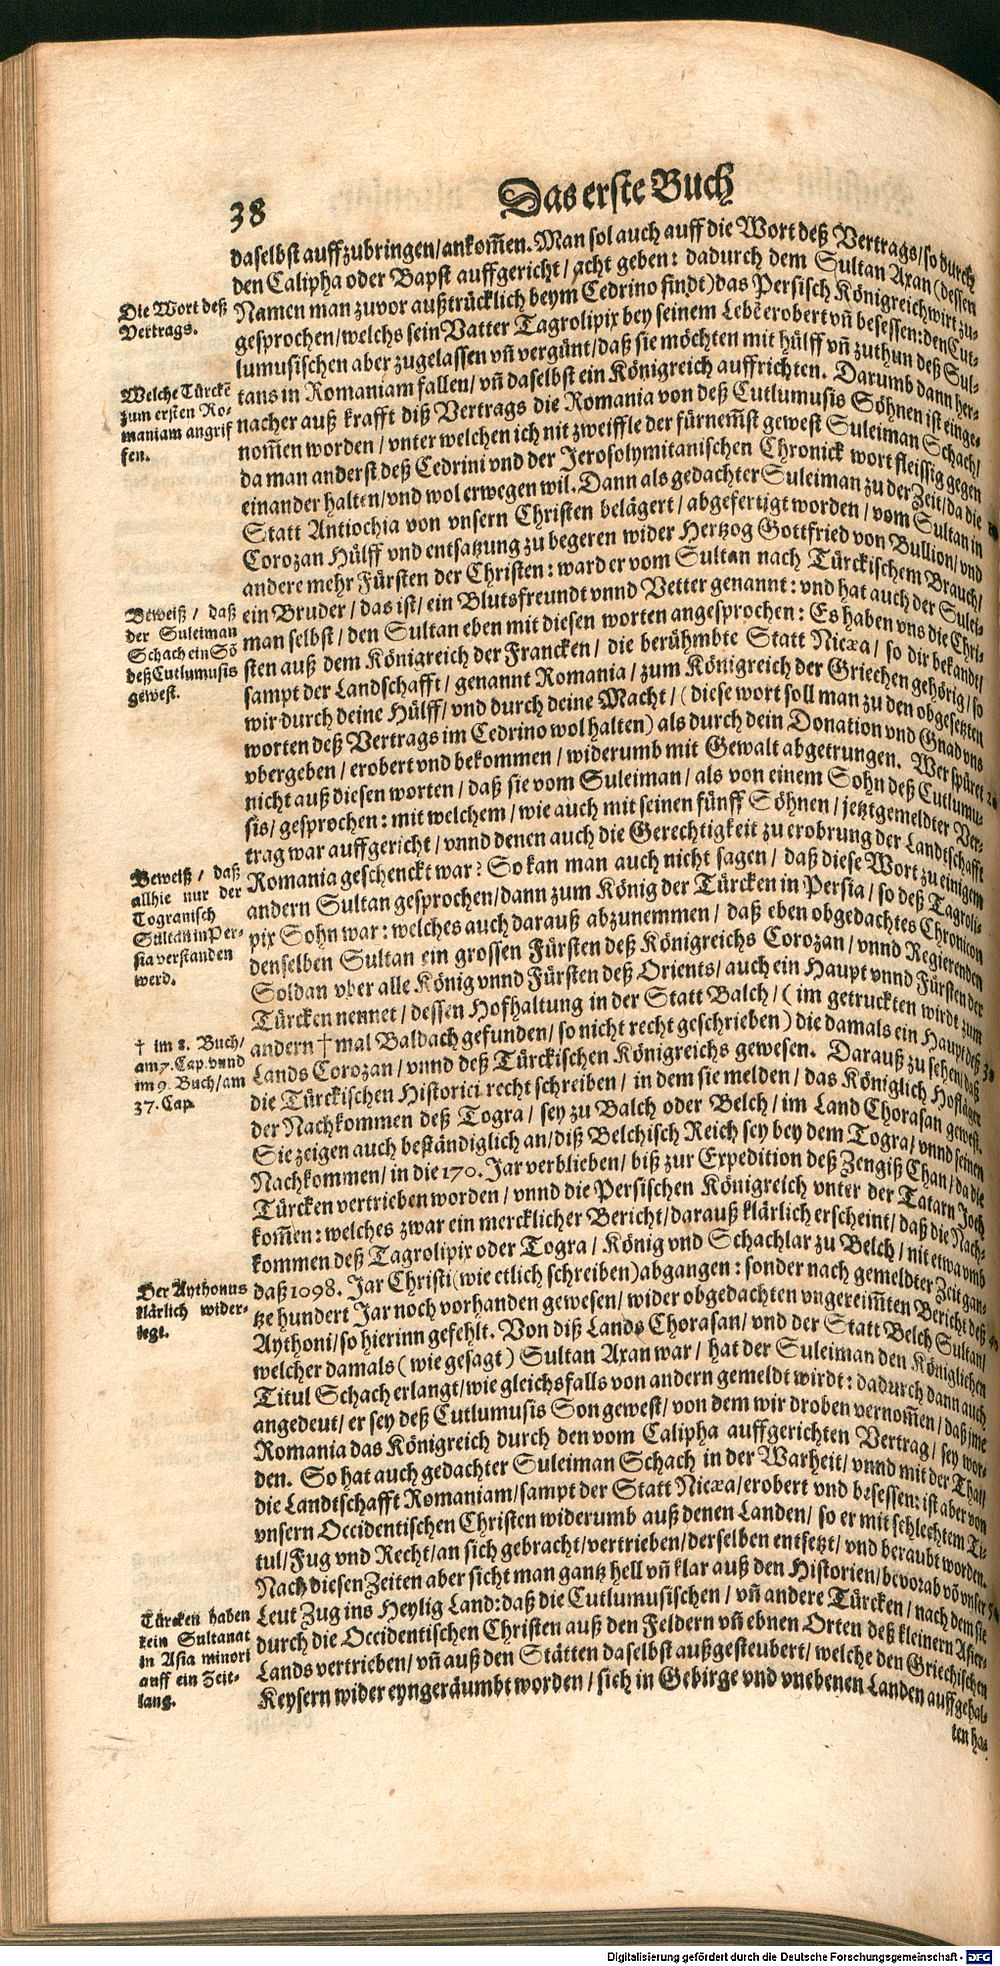 38
Das erste Buch
daselbst auffzubringen/ankom̃en. Man sol auch auff die Wort deß Vertrags/so durch
den Calipha oder Bapst auffgericht/acht geben: dadurch dem Sultan Axan (dessen
Namen man zuvor außtrücklich beym Cedrino findt) das Persisch Königreich wirt zu-
gesprochen/welchs sein Vatter Tagrolipix bey seinem Lebẽ erobert vñ besessen: den Cut-
lumusischen aber zugelassen vñ vergünt/daß sie möchten mit hülff vñ zuthun deß Sul-
tans in Romaniam fallen/vñ daselbst ein Königreich auffrichten. Darumb dann her-
nacher auß krafft diß Vertrags die Romania von deß Cutlumusis Söhnen ist einge-
nom̃en worden/vnter welchen ich nit zweiffle der fürnem̃st gewest Suleiman Schach/
da man anderst deß Cedrini vnd der Jerosolymitanischen Chronick wort fleissig gegen
einander halten/vnd wol erwegen wil. Dann als gedachter Suleiman zu der Zeit/da die
Statt Antiochia von vnsern Christen belägert/abgefertigt worden/vom Sultan in
Corozan Hülff vnd entsatzung zu begeren wider Hertzog Gottfried von Bullion/vnd
andere mehr Fürsten der Christen: ward er vom Sultan nach Türckischem Brauch/
ein Bruder/das ist/ein Blutsfreundt vnnd Vetter genannt: vnd hat auch der Sulei-
man selbst/den Sultan eben mit diesen worten angesprochen: Es haben vns die Chri-
sten auß dem Königreich der Francken/die berühmbte Statt Nicæa/so dir bekandt/
sampt der Landschafft/genannt Romania/zum Königreich der Griechen gehörig/so
wir durch deine Hülff/vnd durch deine Macht/(diese wort soll man zu den obgesetzten
worten deß Vertrags im Cedrino wol halten) als durch dein Donation vnd Gnad vns
vbergeben/erobert vnd bekommen/widerumb mit Gewalt abgetrungen. Wer spüret
nicht auß diesen worten/daß sie vom Suleiman/als von einem Sohn deß Cutlumu-
sis/gesprochen: mit welchem/wie auch mit seinen fünff Söhnen/jetztgemeldter Ver-
trag war auffgericht/vnnd denen auch die Gerechtigkeit zu erobrung der Landtschafft
Romania geschenckt war? So kan man auch nicht sagen/daß diese Wort zu einigem
andern Sultan gesprochen/dann zum König der Türcken in Persia/so deß Tagroli-
pix Sohn war: welches auch darauß abzunemmen/daß eben obgedachtes Chronicon
denselben Sultan ein grossen Fürsten deß Königreichs Corozan/vnnd Regierenden
Soldan vber alle König vnnd Fürsten deß Orients/auch ein Haupt vnnd Fürsten der
Türcken nennet/dessen Hofhaltung in der Statt Balch/(im getruckten wirdt zum
andern † mal Baldach gefunden/so nicht recht geschrieben) die damals ein Haupt deß
Lands Corozan/vnnd deß Türckischen Königreichs gewesen. Darauß zu sehen/daß
die Türckischen Historici recht schreiben/in dem sie melden/das Königlich Hofläger
der Nachkommen deß Togra/sey zu Balch oder Belch/im Land Chorasan gewest.
Sie zeigen auch beständiglich an/diß Belchisch Reich sey bey dem Togra/vnnd seinen
Nachkommen/in die 170. Jar verblieben/biß zur Expedition deß Zengiß Chan/da die
Türcken vertrieben worden/vnnd die Persischen Königreich vnter der Tatarn Joch
kom̃en: welches zwar ein mercklicher Bericht/darauß klärlich erscheint/daß die Nach-
kommen deß Tagrolipix oder Togra/König vnd Schachlar zu Belch/nit etwa vmb
daß 1098. Jar Christi (wie etlich schreiben) abgangen: sonder nach gemeldter Zeit gan-
tze hundert Jar noch vorhanden gewesen/wider obgedachten vngereim̃ten Bericht deß
Aythoni/so hierinn gefehlt. Von diß Lands Chorasan/vnd der Statt Belch Sultan/
welcher damals (wie gesagt) Sultan Axan war/hat der Suleiman den Königlichen
Titul Schach erlangt/wie gleichsfalls von andern gemeldt wirdt: dadurch dann auch
angedeut/er sey deß Cutlumusis Son gewest/von dem wir droben vernom̃en/daß jme
Romania das Königreich durch den vom Calipha auffgerichten Vertrag/sey wor-
den. So hat auch gedachter Suleiman Schach in der Warheit/vnnd mit der Thatt
die Landtschafft Romaniam/sampt der Statt Nicæa/erobert vnd besessen: ist aber von
vnsern Occidentischen Christen widerumb auß denen Landen/so er mit schlechtem Ti-
tul/Fug vnd Recht/an sich gebracht/vertrieben/derselben entsetzt/vnd beraubt worden.
Nach diesen Zeiten aber sicht man gantz hell vñ klar auß den Historien/bevorab võ vnser
Leut Zug ins Heylig Land: daß die Cutlumusischen/vñ andere Türcken/nach dem sie
durch die Occidentischen Christen auß den Feldern vñ ebnen Orten deß kleinern Asier-
Lands vertrieben/vñ auß den Stätten daselbst außgesteubert/welche den Griechischen
Keysern wider eyngeräumbt worden/sich in Gebirge vnd vnebenen Landen auffgehal-
ten ha-
Die Wort deß
Vertrags.
Welche Türckẽ
zum ersten Ro-
maniam angrif
fen.
Beweiß/ daß
der Suleiman
Schach ein Sõ
deß Cutlumusis
gewest.
Beweiß/ daß
allhie nur der
Togranisch
Sultan in Per-
sia verstanden
werd.
† im 8. Buch/
am 7. Cap. vnnd
im 9. Buch/am
37. Cap.
Der Aythonus
klärlich wider-
legt.
Türcken haben
kein Sultanat
in Asia minori
auff ein Zeit-
lang.
Digitalisierung gefördert durch die Deutsche Forschungsgemeinschaft - DFG